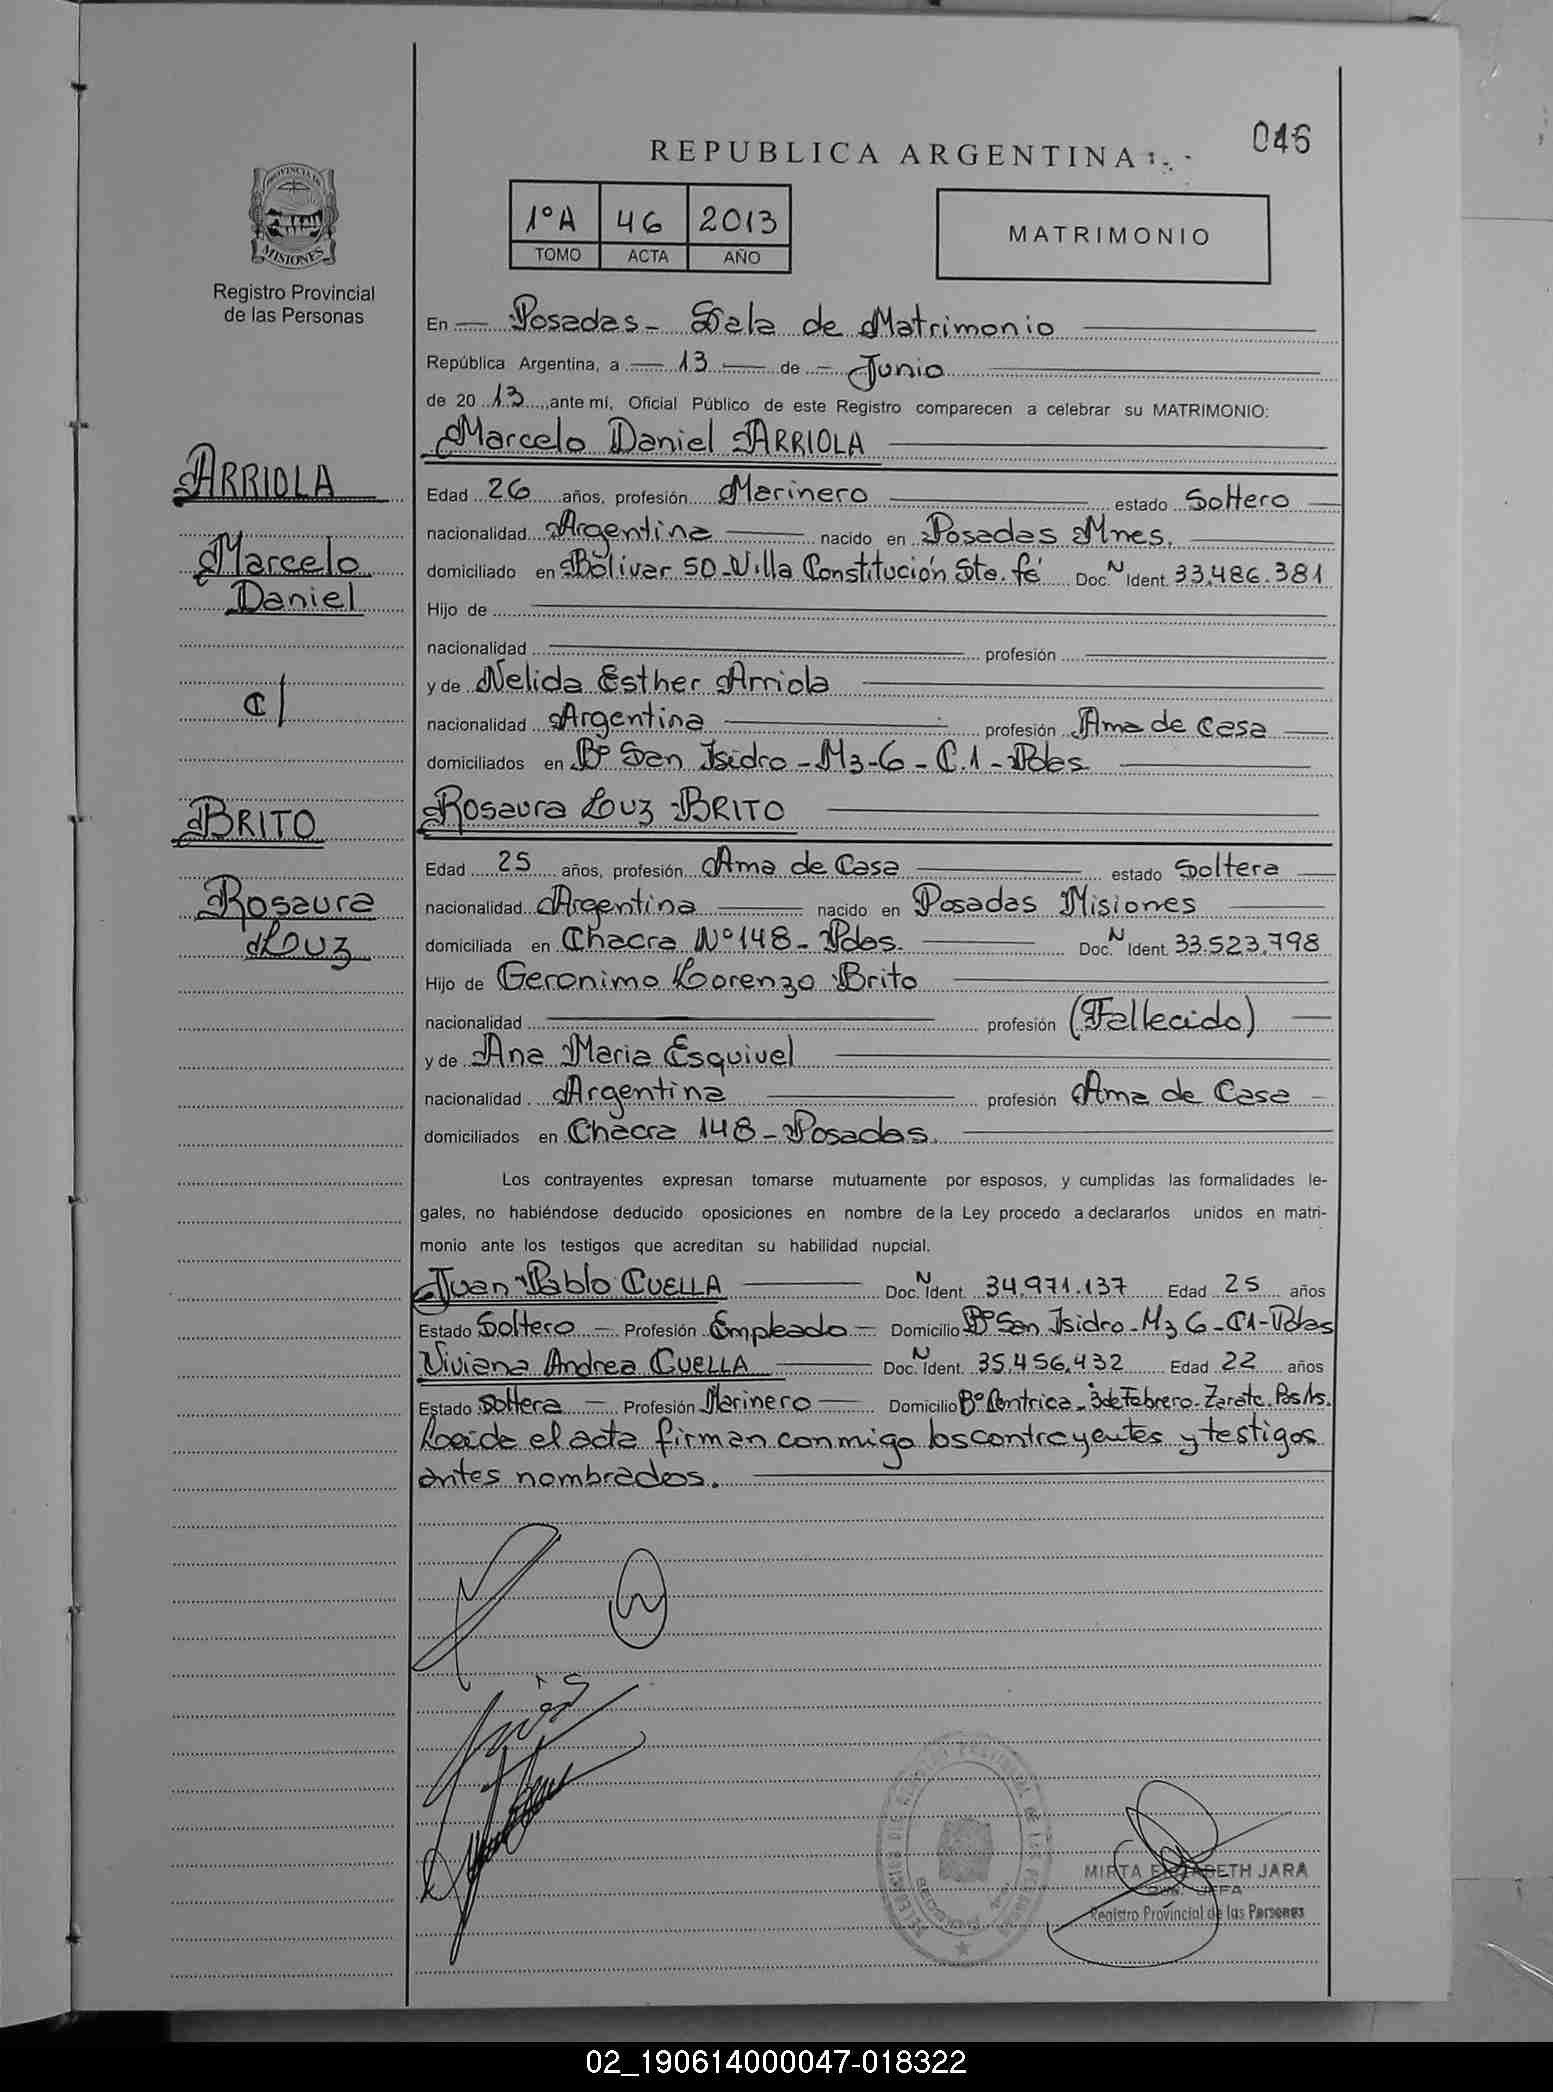 046
REPUBLICA ARGENTINA
1ºA 46 2013
TOMO ACTA AÑO
MATRIMONIO
PROVINCIA DE
MISIONES
Registro Provincial
de las Personas
En Posadas - Sala de Matrimonio
República Argentina, a 13 de Junio
de 2013, ante mí, Oficial Público de este Registro comparecen a celebrar su MATRIMONIO:
Marcelo Daniel ARRIOLA
ARRIOLA
Marcelo
Daniel
c/
BRITO
Rosaura
Luz
Edad 26 años, profesión Marinero estado Soltero
nacionalidad Argentina nacido en Posadas Mnes.
domiciliado en Bolivar 50 - Villa Constitución Sta. fé Doc. N Ident. 33.486.381
Hijo de
nacionalidad profesión
y de Nelida Esther Arriola
nacionalidad Argentina profesión Ama de casa
domiciliados en Bº San Isidro - M3-6 - C.1 - Pdas
Rosaura Luz BRITO
Edad 25 años, profesión Ama de Casa estado Soltera
nacionalidad Argentina nacido en Posadas Misiones
domiciliada en Chacra Nº 148 - Pdas. Doc. N Ident. 33.523.798
Hijo de Geronimo Lorenzo Brito
nacionalidad profesión (Fallecido)
y de Ana Maria Esquivel
nacionalidad Argentina profesión Ama de Casa
domiciliados en Chacra 148 - Posadas.
Los contrayentes expresan tomarse mutuamente por esposos, y cumplidas las formalidades le-
gales, no habiéndose deducido oposiciones en nombre de la Ley procedo a declararlos unidos en matri-
monio ante los testigos que acreditan su habilidad nupcial.
Juan Pablo CUELLA Doc. N Ident. 34.971.137 Edad 25 años
Estado Soltero Profesión Empleado Domicilio Bº San Isidro - M3 6 - C1 - Pdas
Viviana Andrea CUELLA Doc. N Ident. 35.456.432 Edad 22 años
Estado Soltera Profesión Marinero Domicilio Bº Centrica - 3 de Febrero - Zarate. Bs As.
Leida el acta firman conmigo los contrayentes y testigos
antes nombrados.
MIRTA ELIZABETH JARA
JEFA
Registro Provincial de las Personas
02_190614000047-018322